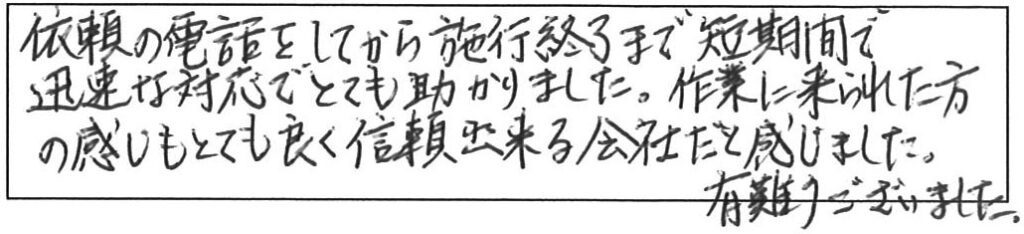 依頼の電話をしてから施行終了まで短期間で
迅速な対応でとても助かりました。作業に来られた方
の感じもとても良く信頼出来る会社だと感じました。
有難うございました。